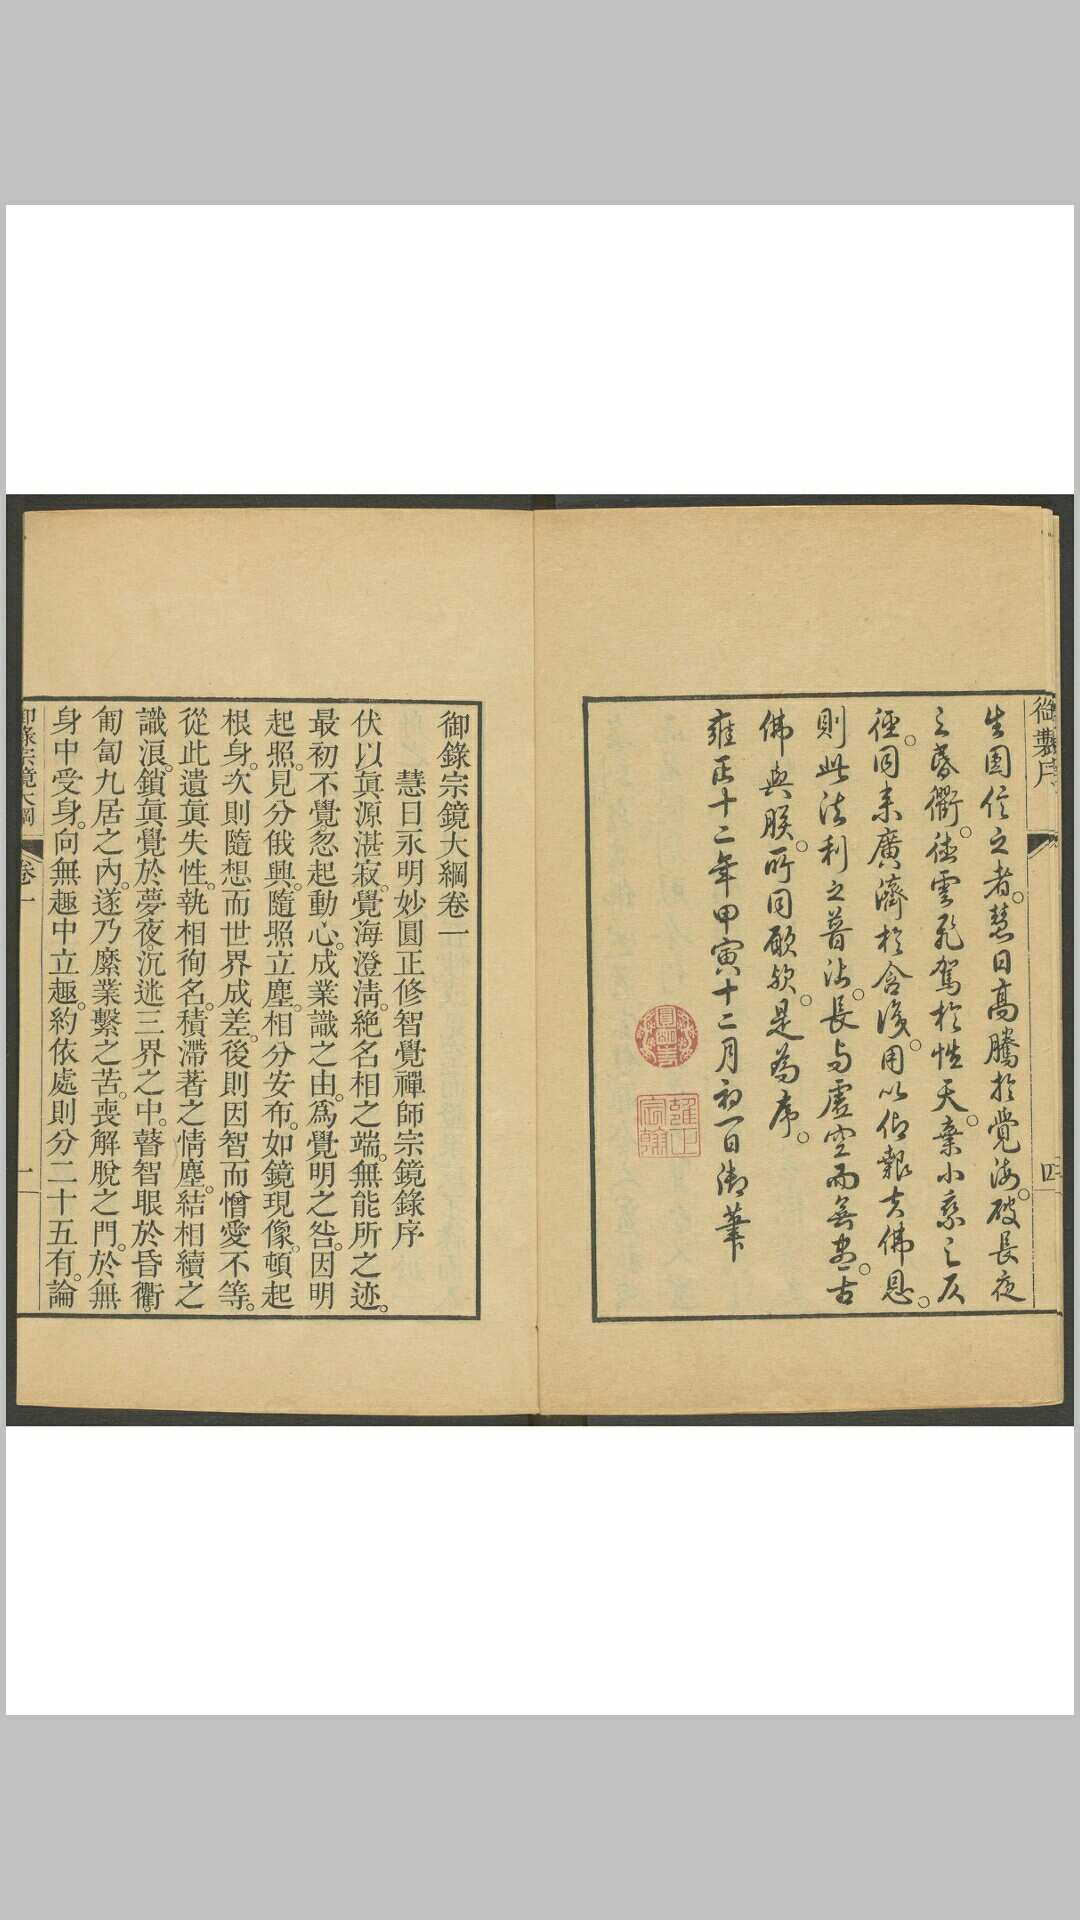 生圓信之者。慧日高騰於覺海。破長夜
之昏衢。法雲飛駕於性天。棄小乘之仄
徑。同來廣濟於含識。用以仰報夫佛恩。
則此法利之普沾。長与虛空而無盡。古
佛與朕。所同願欤。是為序。
雍正十二年甲寅十二月初一日御筆
圓明主人
雍正宸翰
御錄宗鏡大綱卷一
慧日永明妙圓正修智覺禪師宗鏡錄序
伏以眞源湛寂。覺海澄淸。絶名相之端。無能所之迹。
最初不覺。忽起動心。成業識之由。爲覺明之咎。因明
起照。見分俄興。隨照立塵。相分安布。如鏡現像。頓起
根身。次則隨想而世界成差。後則因智而憎愛不等。
從此遺眞失性。執相徇名。積滯著之情塵。結相續之
識浪。鎖眞覺於夢夜。沉迷三界之中。瞽智眼於昏衢。
匍匐九居之內。遂乃縻業繫之苦。喪解脫之門。於無
身中受身。向無趣中立趣。約依處則分二十五有。論
御錄宗鏡大綱 卷一 一